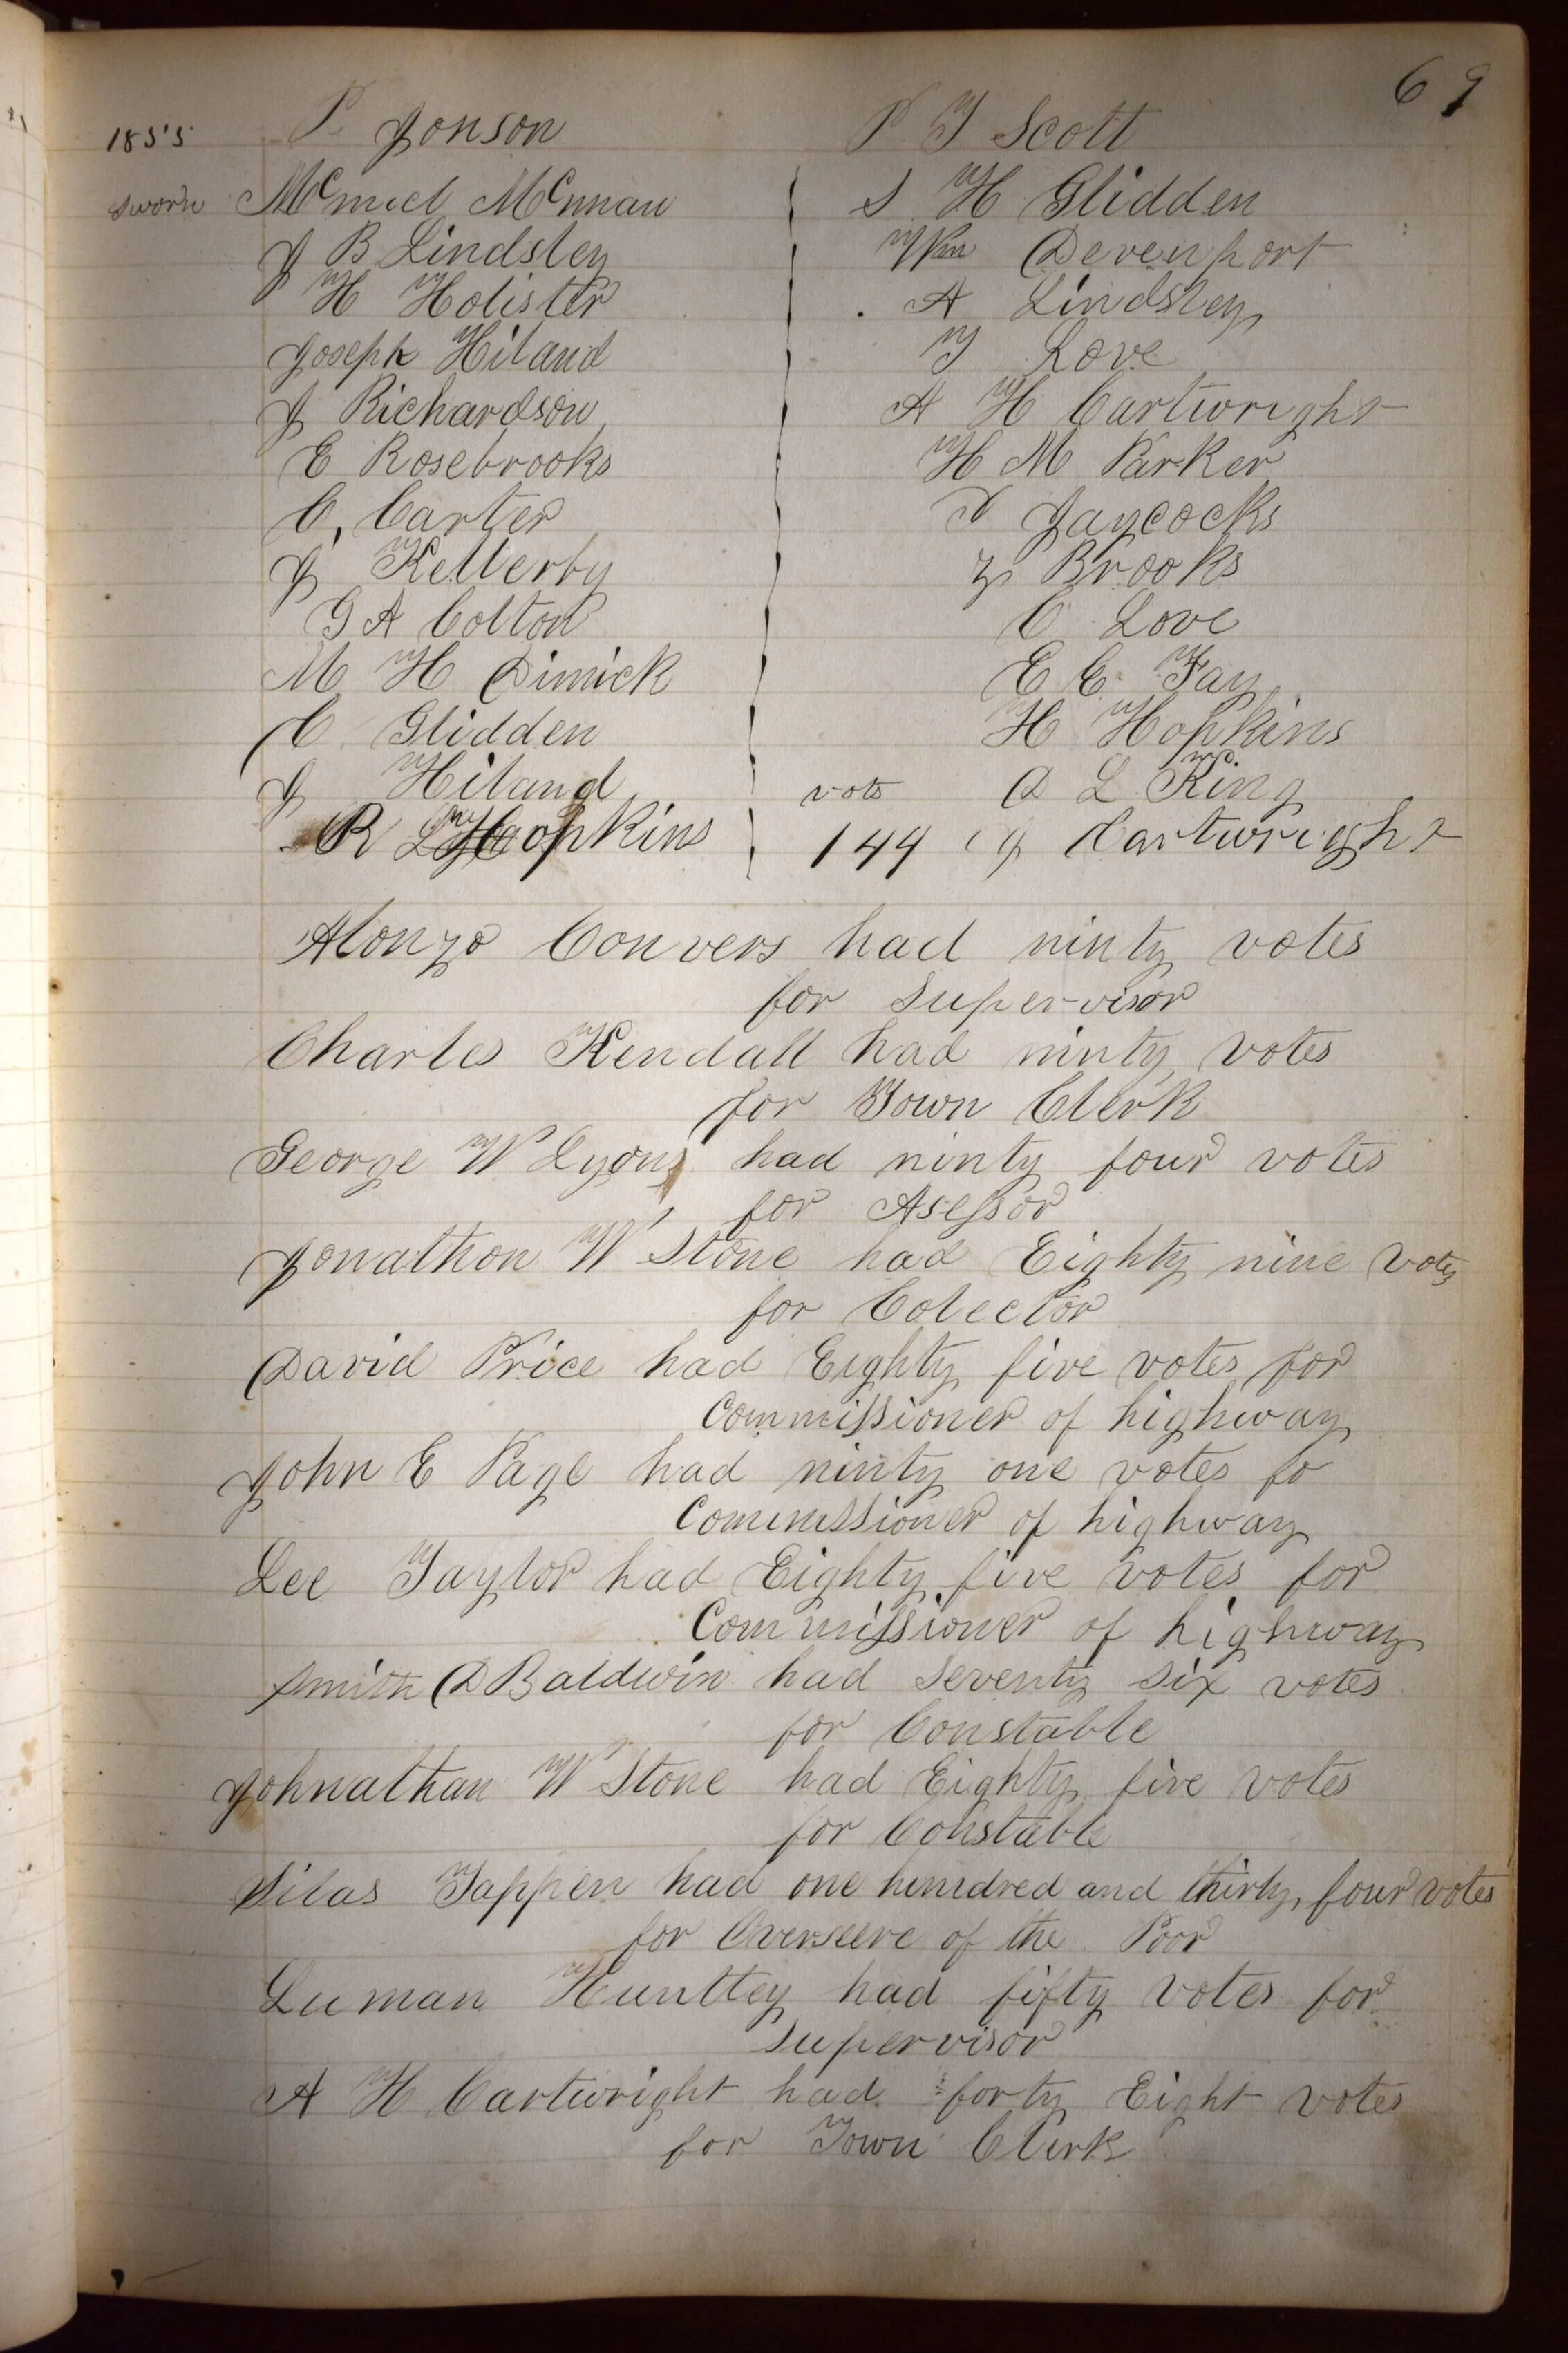 69
1855 P. Jonson P T Scott
sworn McNiel McNnan S H Glidden
J B Lindsley Wm Devenport
H Holister A Lindsley
Joseph Hiland T Love
J Richardson A H Cartwright
E Rosebrooks H M Parker
C. Carter Jaycocks
J Kellerby Z Brooks
G A Colton C Love
M H Dimick E C Fay
C Glidden H Hopkins
J Hiland vote D L King
R L Hopkins 144 J Cartwright
Alonzo Convers had ninty votes
for Supervisor
Charles Kendall had ninty votes
for Town Clerk
George W Lyons had ninty four votes
for Asessor
Jonathon W Stone had Eighty nine votes
for Colector
David Price had Eighty five votes for
Commissioner of highway
John E Page had ninty one votes fo
Commissioner of highway
Lee Taylor had Eighty five votes for
Commissioner of highway
Smith D Baldwin had Seventy Six votes
for Constable
Johnathan W Stone had Eighty five votes
for Constable
Silas Tappen had one hundred and thirty four votes
for Overseere of the Poor
Luman Huntley had fifty votes for
supervisor
A H Cartwright had forty Eight votes
for Town Clerk